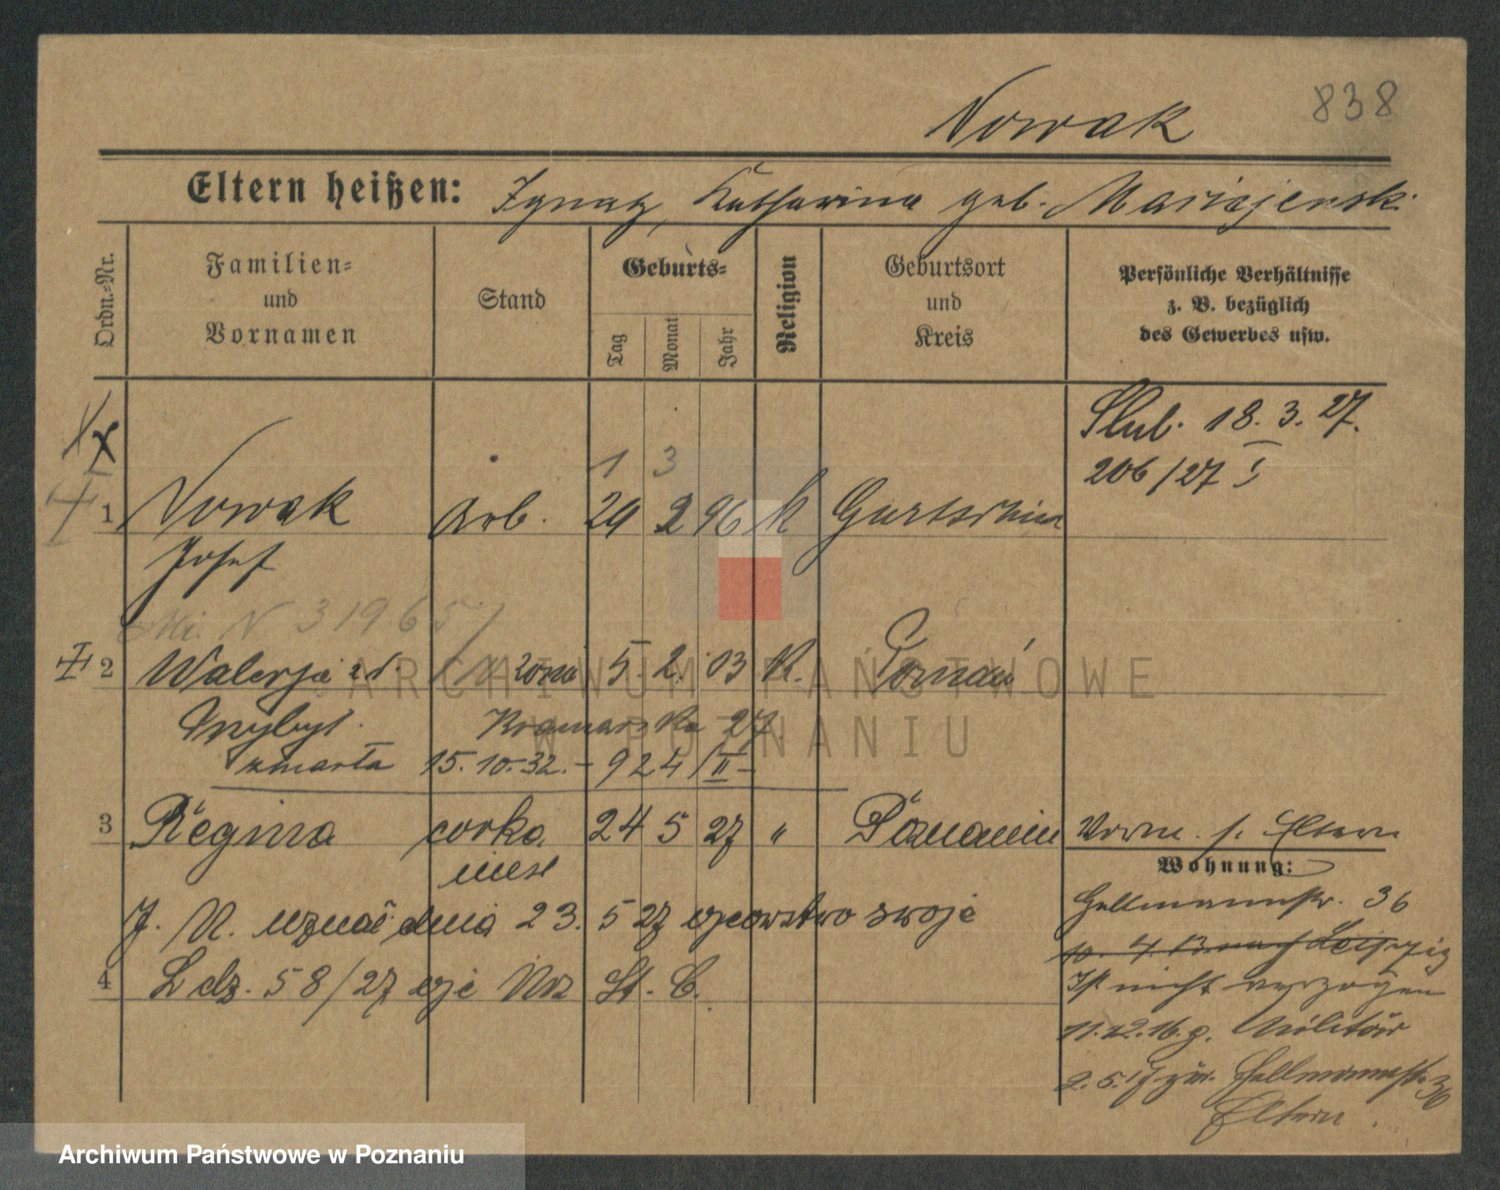 Nowak 838
Eltern heißen: Ignatz, Katharina geb.
Ordn.=Nr.
Familien=
und
Vornamen
Stand
Geburts=
Tag
Monat
Jahr
Religion
Geburtsort
und
Kreis
Persönliche Verhältnisse
z. B. bezüglich
des Gewerbes usw.
Slub. 18. 3. 27.
206/27 I
1 3
1 Nowak Arb. 29 2 96 K
Josef
N 31965
2 Walerja z d. żona 5. 2. 03 K. Poznań
Wybył. Kramarska 27
zmarła 15. 10. 32. - 924/II -
3 Regina córka 24 5 27 " Poznaniu Worm. s. Eltern
niesl
Wohnung:
Hellmannstr. 36
J. N. uznał dnia 23. 5 27 ojcowstwo swoje
10. 4. 13 nach Leipzig
4 L dz. 58/27 oje Urz St. C.
Ist nicht verzogen
11. 12. 16. g. Militär
2. 5. 17 zur. Hellmannstr. 36
Eltern.
ARCHIWUM PAŃSTWOWE
W POZNANIU
Archiwum Państwowe w Poznaniu